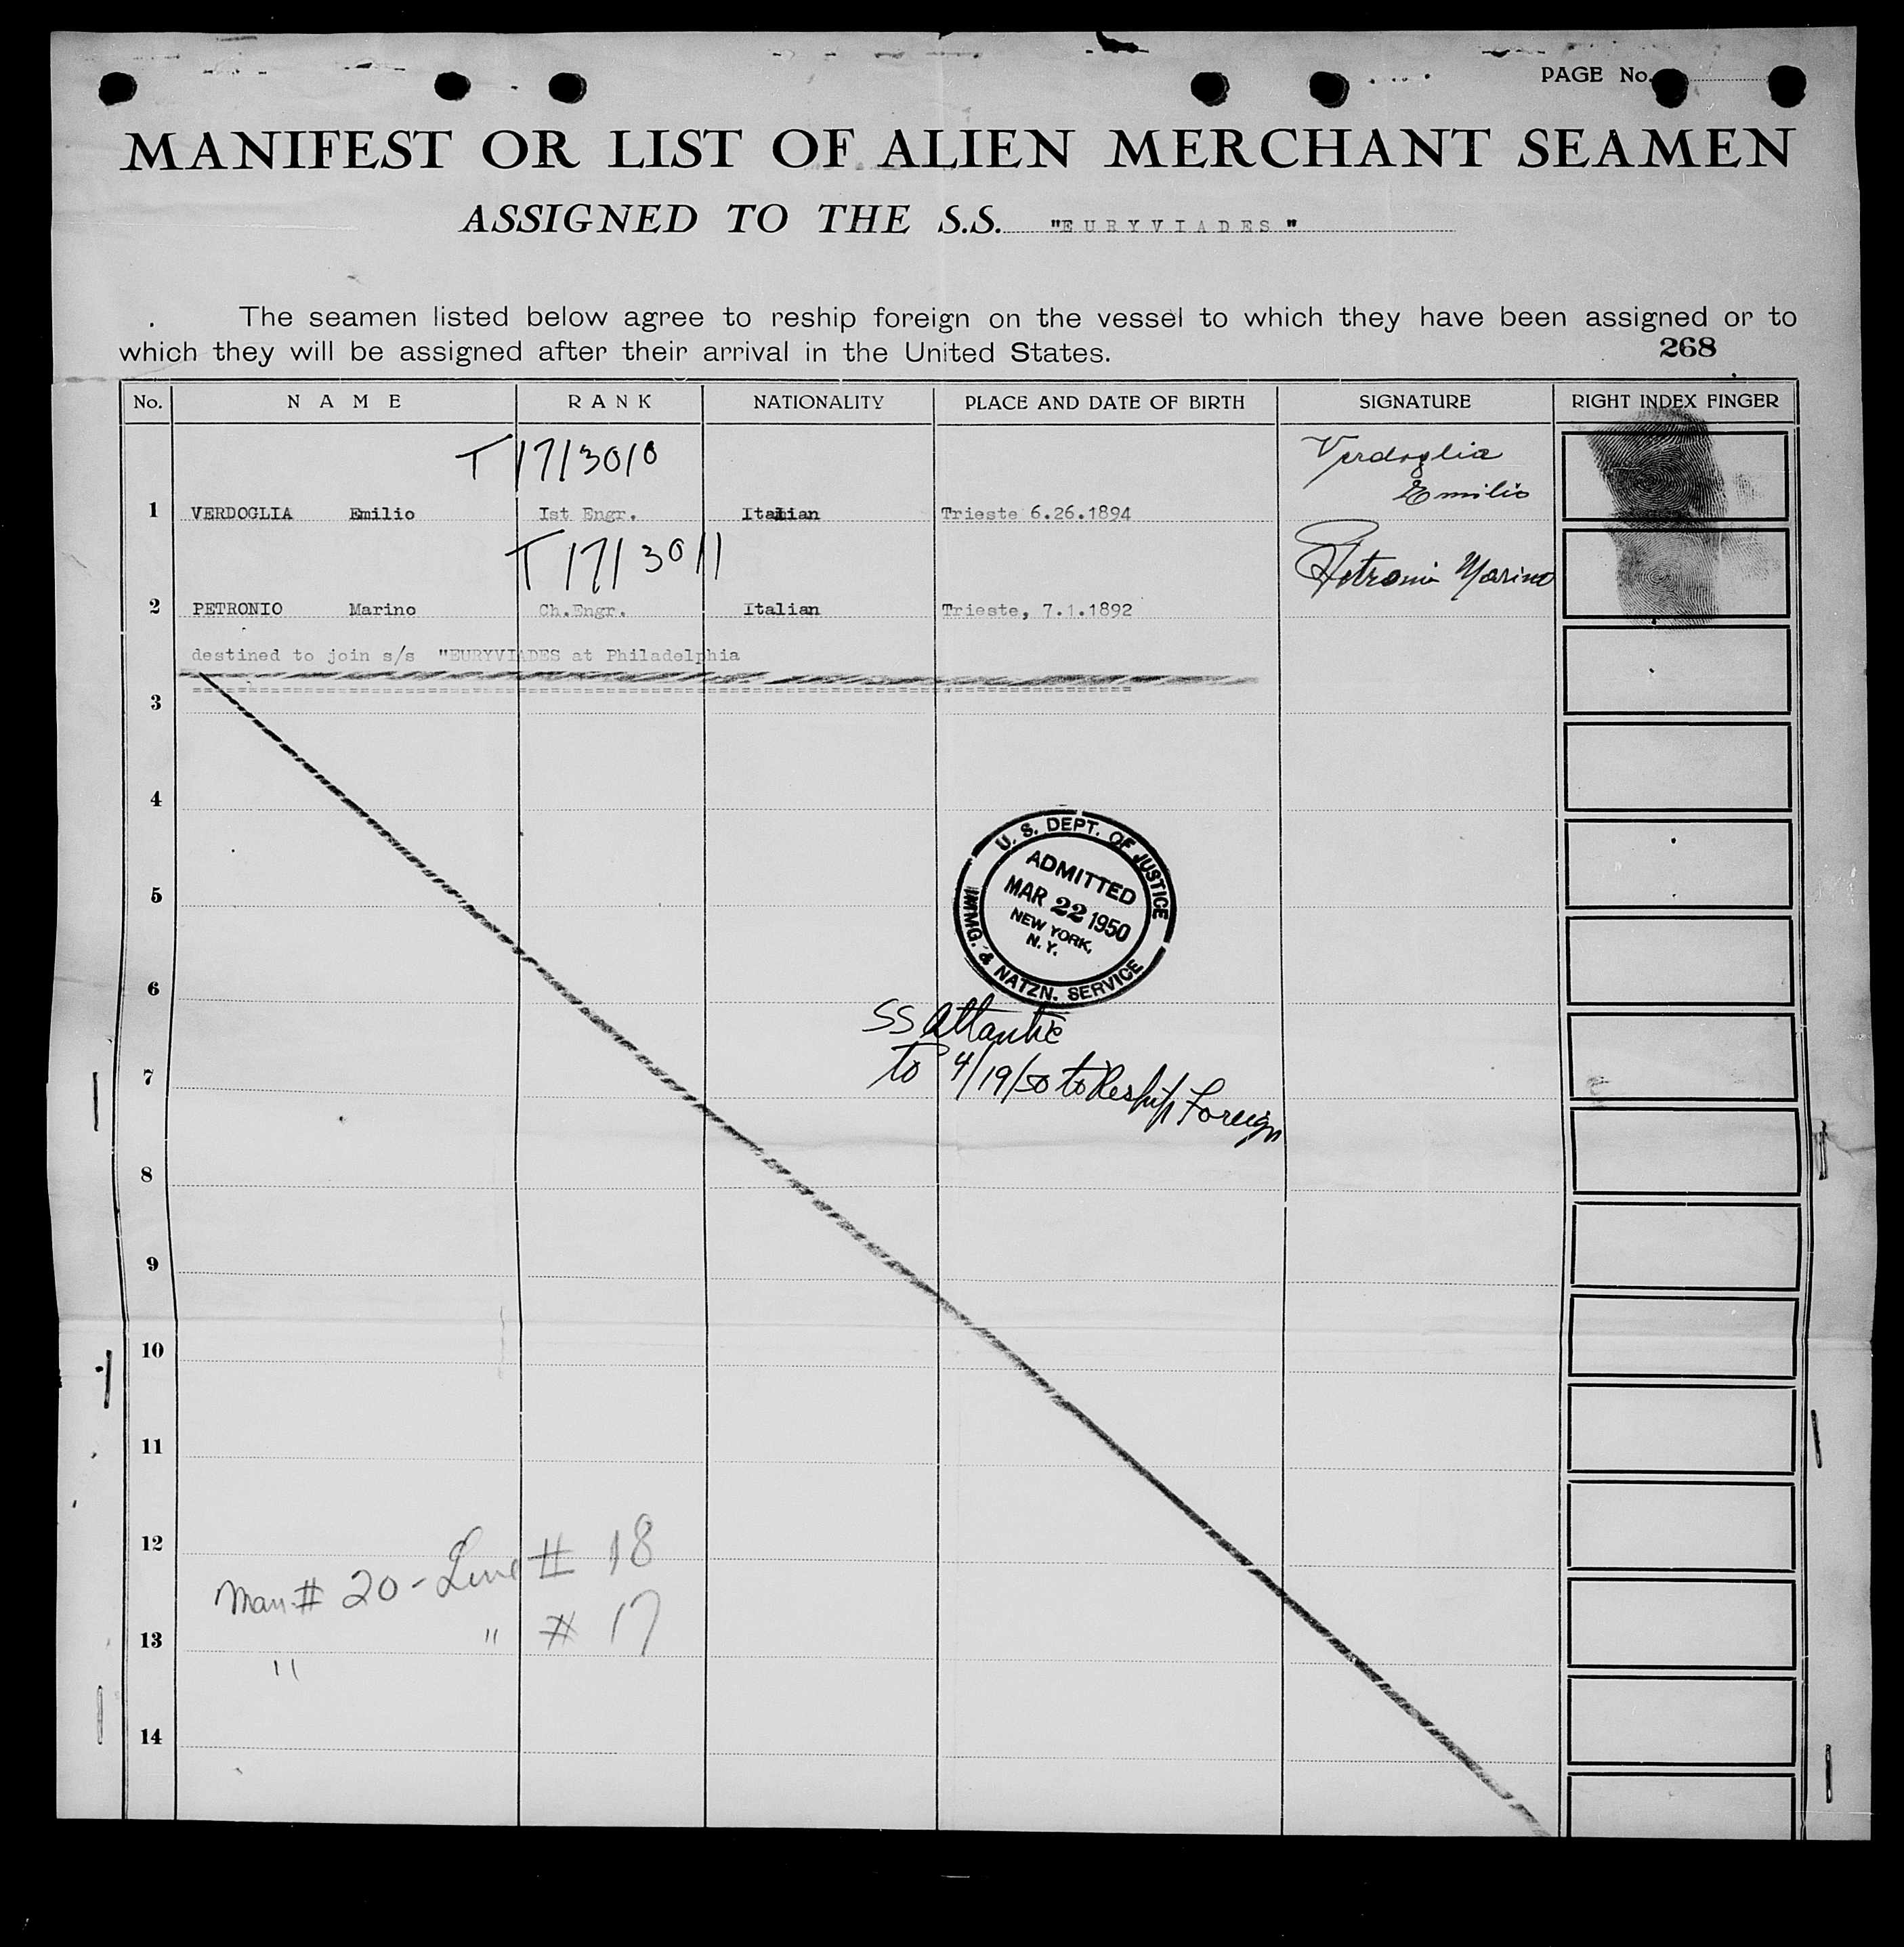 PAGE No.
MANIFEST OR LIST OF ALIEN MERCHANT SEAMEN
ASSIGNED TO THE S.S. "EURYVIADES"
The seamen listed below agree to reship foreign on the vessel to which they have been assigned or to
which they will be assigned after their arrival in the United States.
268
No. NAME RANK NATIONALITY PLACE AND DATE OF BIRTH SIGNATURE RIGHT INDEX FINGER
T 171/3010
Verdoglia
Emilio
1 VERDOGLIA Emilio Ist Engr. Italian Trieste 6.26.1894
T 171/3011
Petronio Marino
2 PETRONIO Marino Ch.Engr. Italian Trieste, 7.1.1892
destined to join s/s "EURYVIADES at Philadelphia
3
4
U. S. DEPT. OF JUSTICE
ADMITTED
MAR 22 1950
NEW YORK,
N. Y.
IMMG. & NATZN. SERVICE
5
6
SS Atlantic
to 4/19/50 to Reship Foreign
7
8
9
10
11
12
Man # 20 - Line # 18
" " # 17
13
14